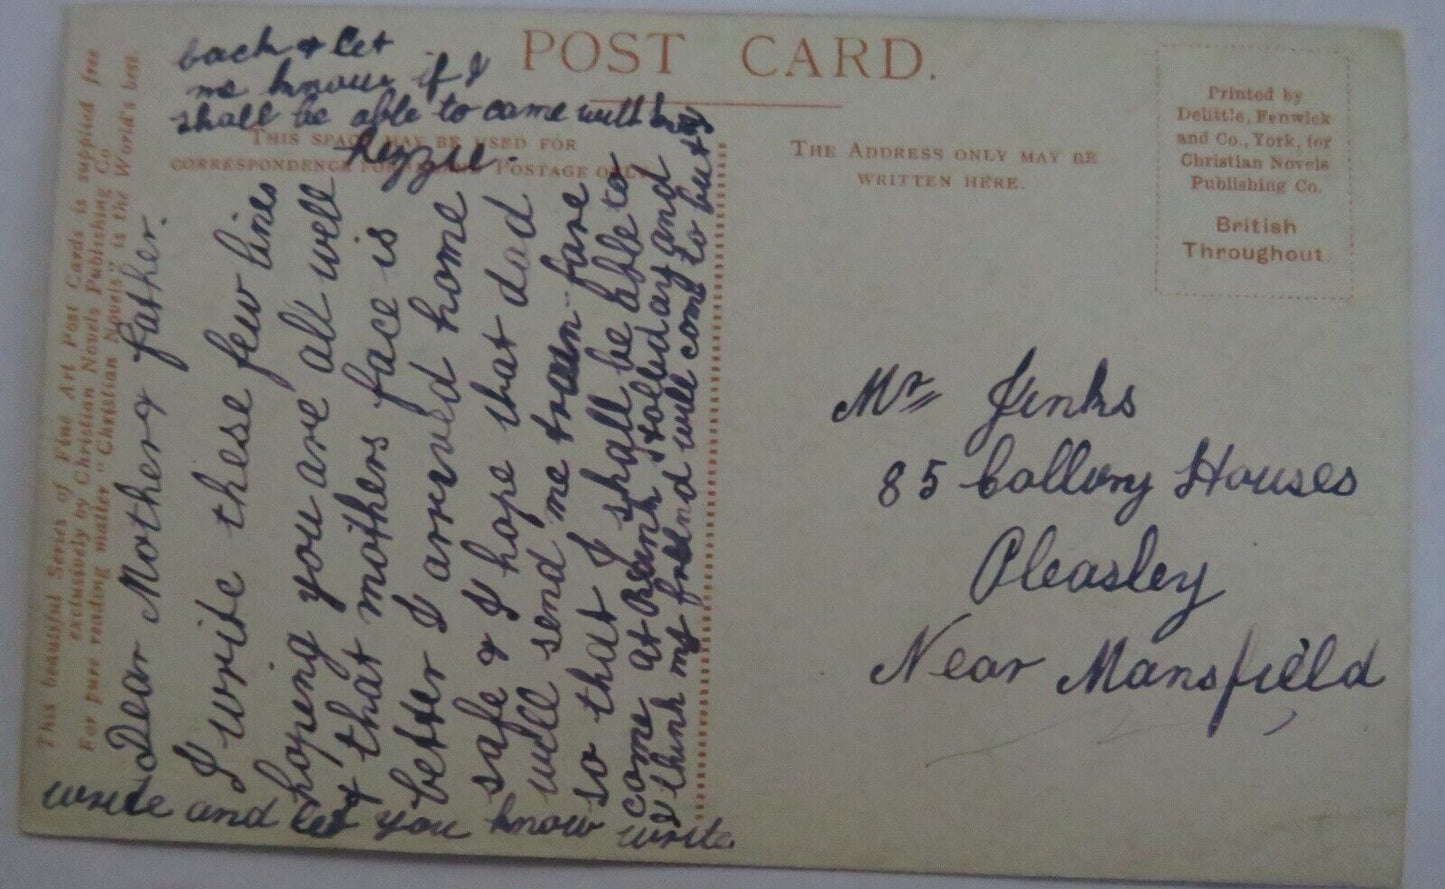 POST CARD.
THIS SPACE MAY BE USED FOR
CORRESPONDENCE FOR POSTAGE ONLY
THE ADDRESS ONLY MAY BE
WRITTEN HERE.
Printed by
Delittle, Fenwick
and Co., York, for
Christian Novels
Publishing Co.
British
Throughout.
This beautiful Series of Fine Art Post Cards is supplied free
exclusively by Christian Novels Publishing Co
For pure reading matter "Christian Novels" is the World's best.
Dear Mother & father.
I write these few lines
hoping you are all well
& that mothers face is
better I arrived home
safe & I hope that dad
will send me train fare
so that I shall be able to
come at holleday and
I think my friend will come to but
write and let you know write
back & let
me know if I
shall be able to come with
Lizzie.
Mr Jinks
85 Collony Houses
Pleasley
Near Mansfield